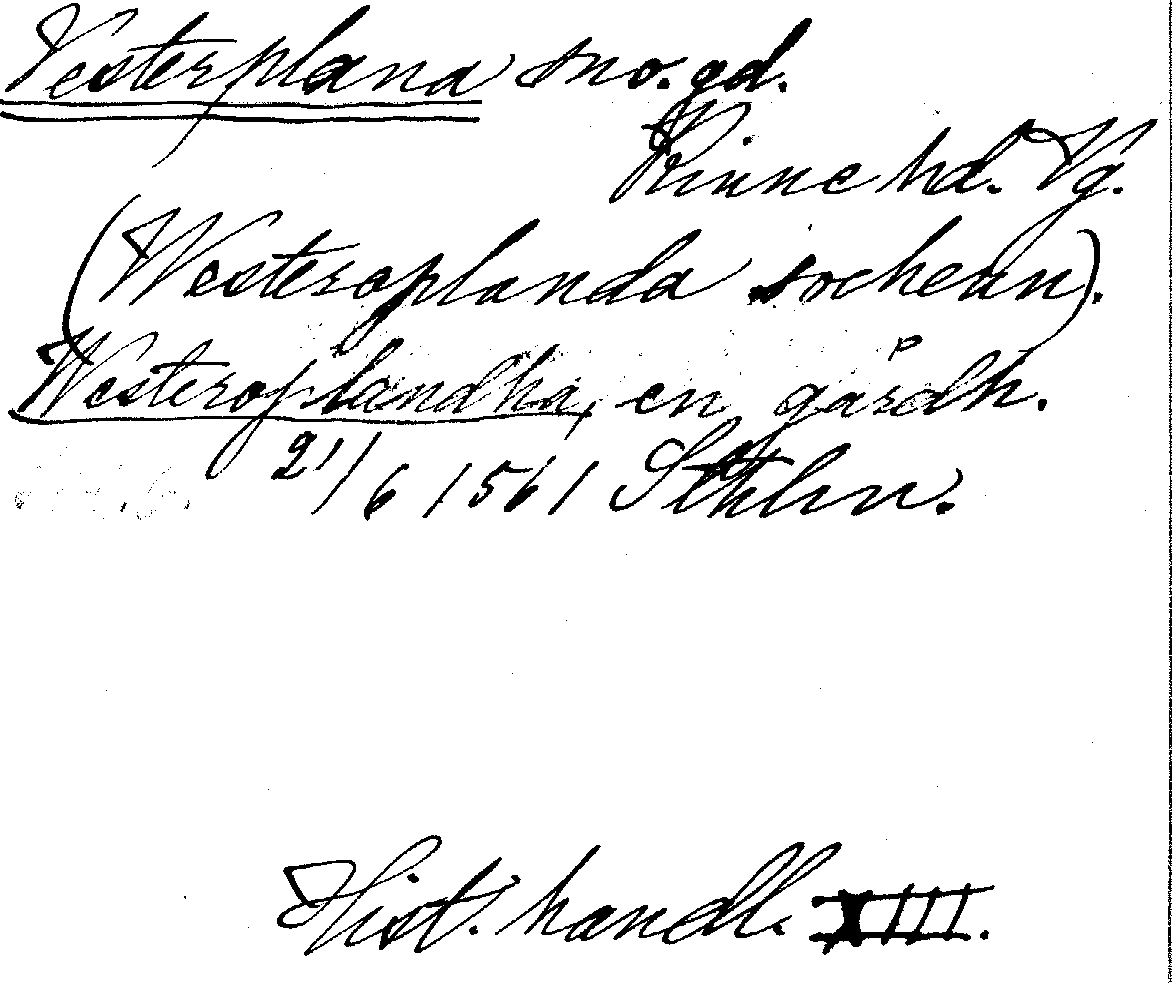 Vesterplana sno. gd.
Kinne hd. Vg.
(Westeroplanda sochean).
Westeroplandha, en gårdh.
21/6 1561 Sthlm.
Hist. handl. XIII.